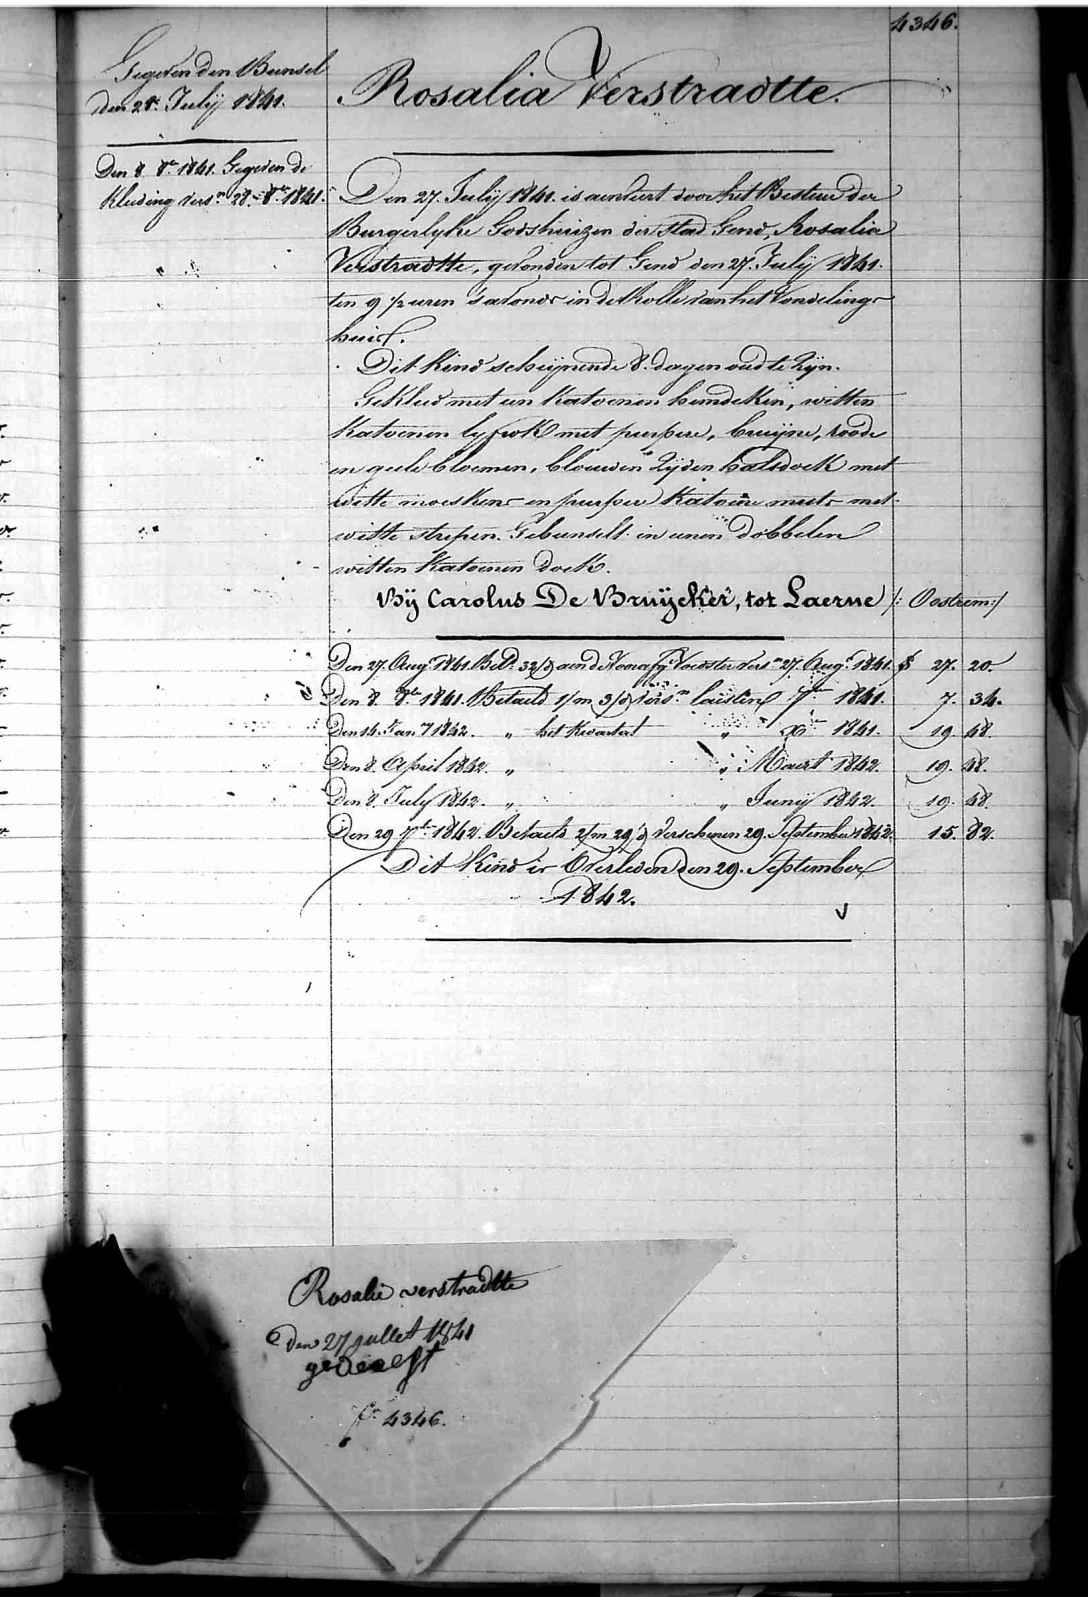 4346.
Gegeven den Bunsel
den 28. Julÿ 1841.
Rosalia Verstradtte.
Den 8. 8.er 1841. Gegeven de
Kleeding vers.n 28. 8.er 1841.
Den 27. Julÿ 1841. is aenveirt door het Bestuur der
Burgerlyke Godshuizen der stad Gend, Rosalia
Verstradtte, gevonden tot Gend den 27. Julÿ 1841.
ten 9 1/2 uren 's avonds in de Rolle van het Vondelings
huis.
Dit Kind schijnende 8. dagen oud te Zÿn.
Gekleed met een Katoenen hemdeken, witten
Katoenen lyfrok met purpere, bruÿne, roode
en geele bloemen, blauwen Zÿden halsdoek met
witte moeskens en purper Katoene muts met
witte strepen. Gebunselt in eenen dobbelen
witten Katoenen doek.
Bÿ Carolus De Bruÿcker, tot Laerne /: Oostrem:/
Den 27. Aug. 1841. Bet.d 32/d aen de Voorster vers.n 27. Aug. 1841. 27. 20.
Den 8. 8.er 1841. Betaeld 1/m 3/d vers.n laisten 7.er 1841. 7. 34.
Den 14. Jan. 1842. „ het Kwartael „ X.er 1841. 19. 48.
Den 8. April 1842. „ „ Maert 1842. 19. 48.
Den 8. July 1842. „ „ Junÿ 1842. 19. 48.
Den 29 7.er 1842. Betaeld 2/m 29/d Verschenen 29. September 1842. 15. 82.
Dit Kind is Overleden den 29. September
1842.
Rosalie verstradtte
den 27 jullet 1841
gedeeft
f.o 4346.